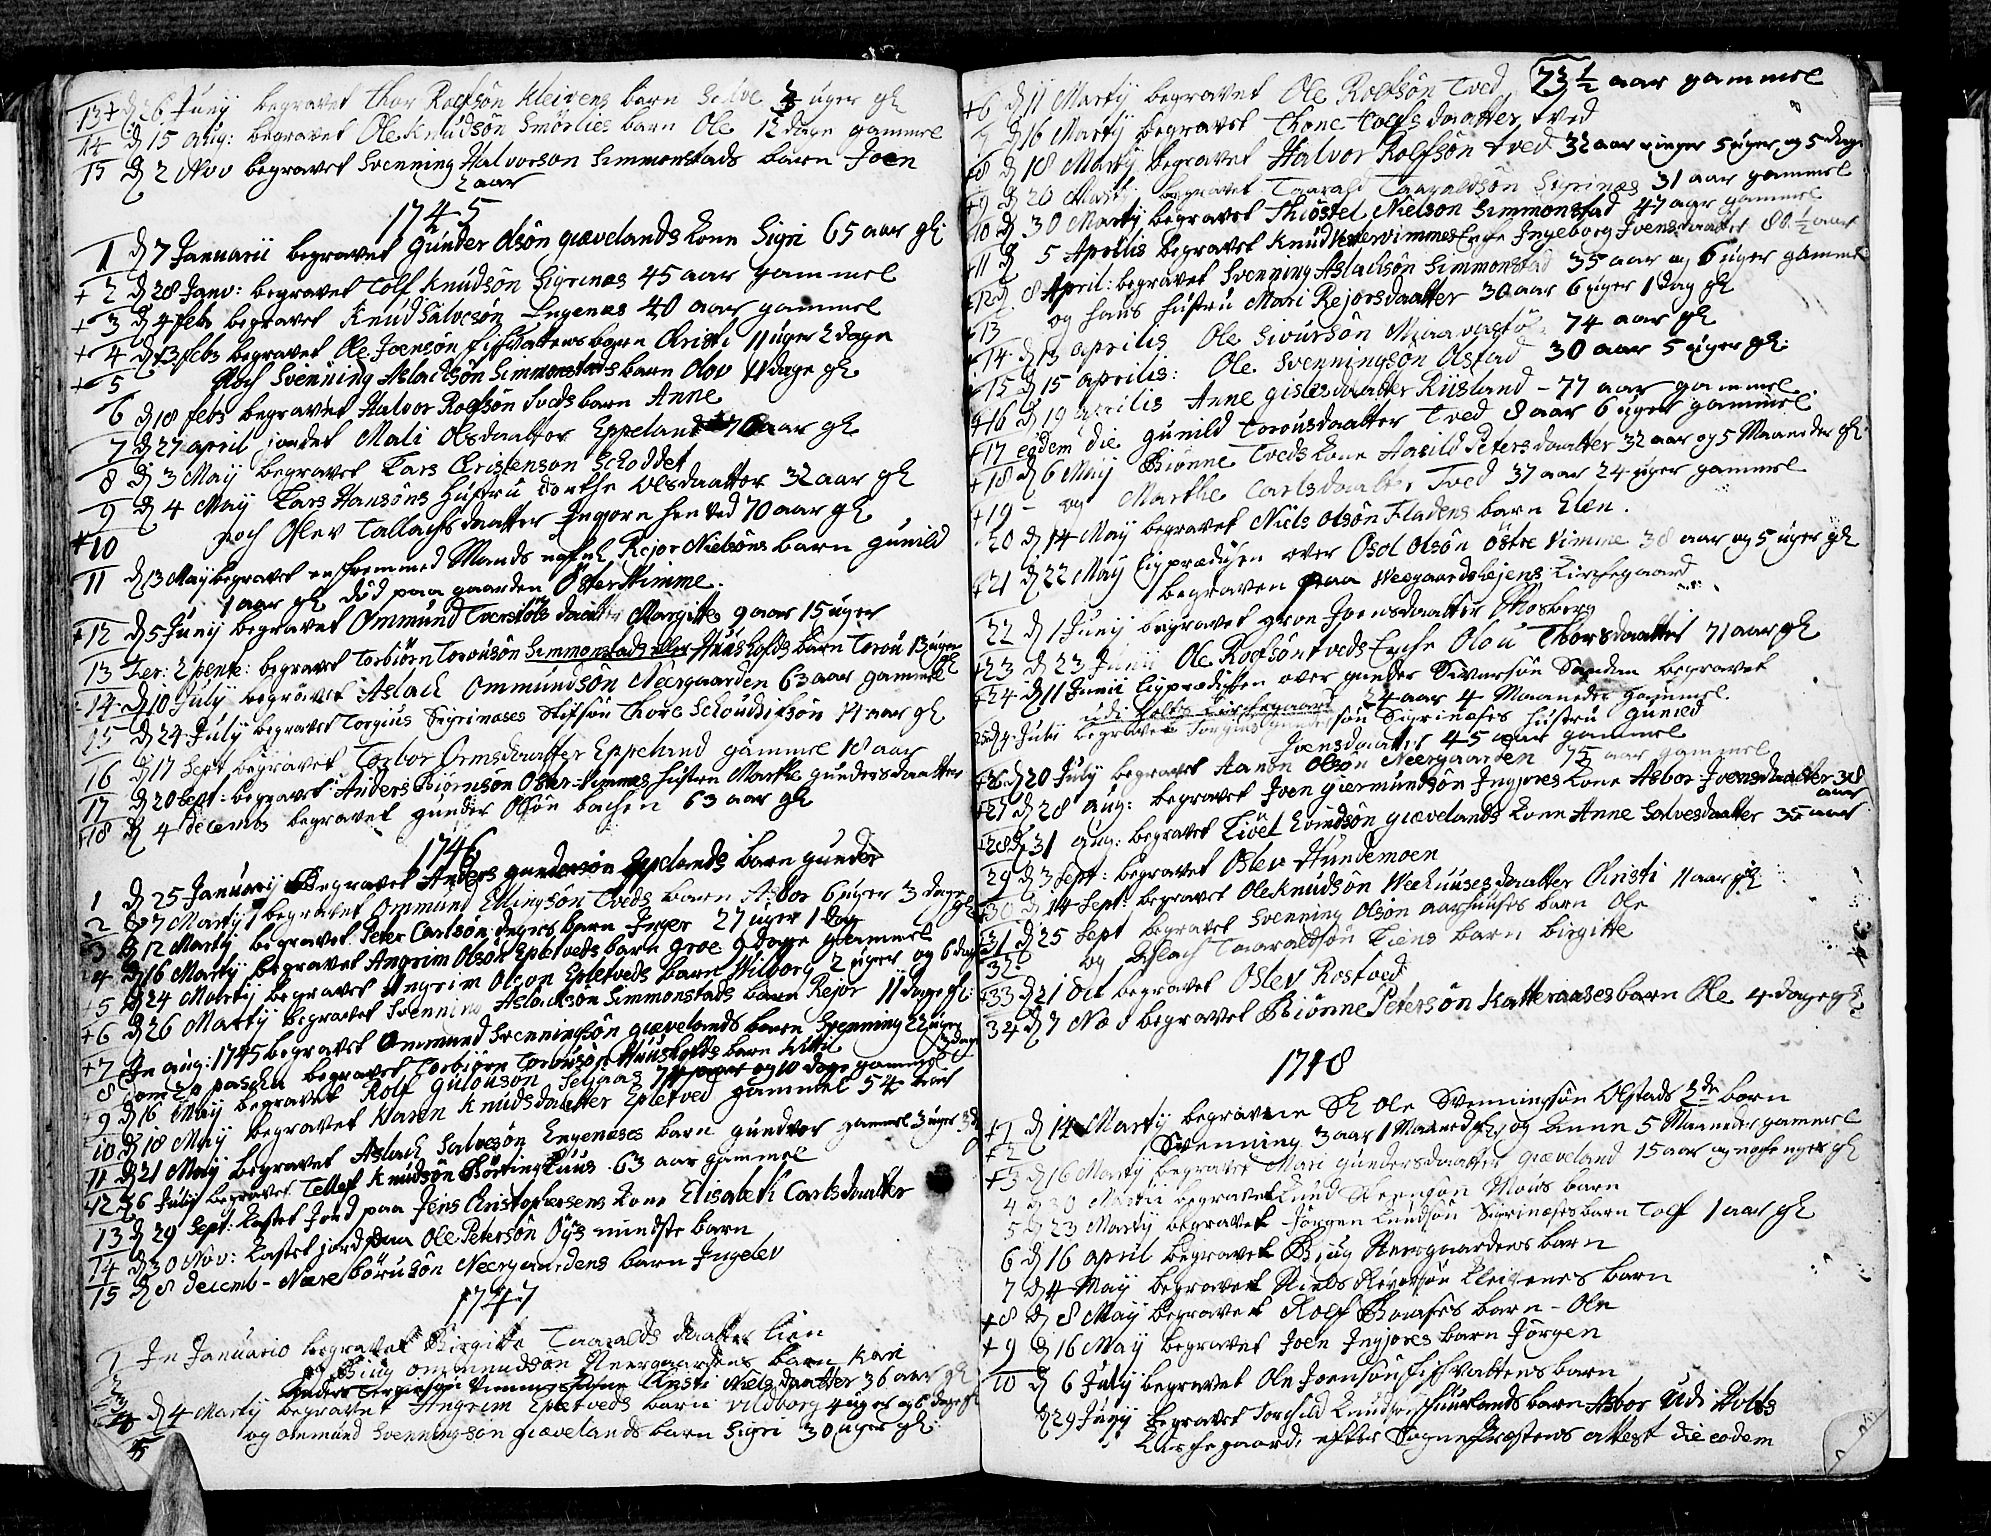 13 + d 26 Junij begravet Thor Rolfsön Kleivens barn Salve 3 uger gl
14 d 15 aug: begravet Ole Knudsön Smörlies barn Ole 12 dage gammel
15 d 2 Nov begravet Svenning Halvorson Simmonstads barn Joen
2 aar
1745
1 d 7 Januarii begravet Gunder Olsön Grævelands kone Sigri 65 aar gl:
+ 2 d 28 Janv: begravet Tolf Knudsön Sigrinæs 45 aar gammel
+ 3 d 4 febr begravet Knud Salvesön Engenæs 40 aar gammel
+ 4 d 13 febr begravet Ole Joensön fischvattens barn Christi 11 uger 2 dage
+ 5 Noch Svenning Aslachsön Simmonstads barn Olov 11 dage gl
6 d 18 febr begravet Halvor Rolfsön Tveds barn Anne
7 d 27 april jordet Mali Olsdaatter Eppeland 70 aar gl
8 d 3 Maij begravet Lars Christenson Schoddet
9 d 4 Maij Lars Hansöns hustru Dorthe Olsdaatter 32 aar gl
+ 10 noch Oslev Tallachsdaatter Ingorn hen ved 70 aar gl
11 d 13 Maij begravet en fremmed Mands nafnl Rejor Nielsöns barn Gunild
1 aar gl död paa gaarden Öster Vimme.
+ 12 d 5 Junij begravet Ommund Tverstöls daatter Margitte 9 aar 15 uger
13 Fer: 2 pente: begravet Torbiörn Torousön Simmonstads eller Huusholts barn Torou 13 uger gl
14 d 10 July begravet Aslach Ommundsön Neergaarden 63 aar gammel
15 d 24 July begravet Torgius Sigrinæses Stifsön Thore 14 aar gl
16 d 17 Sept begravet Torbor Ormsdaatter Eppeland gammel 18 aar
17 d 20 Sept: begravet Anders Biörnsön Öster-Vimmes hustru Marthe Gundersdaatter
+ 18 d 4 decembr begravet Gunder Olsön bachen 63 aar gl
1746
1 d 25 Januarij Begravet Anders Gundersön Eppelands barn Gunder
2 d 7 Martij begravet Ommund Ellingsön Tveds barn Asbor 6 uger 3 dage gl
3 d 12 Martij begravet Peter Carlsön barn Inger 27 uger 1 dag
4 d 16 Martij begravet Angrim Olsön Epletveds barn Groe 9 dage gammel
+ 5 d 24 Martij begravet Angrim Olson Epletveds barn Wilborg 2 uger og 6 dage
+ 6 d 26 Martij begravet Svenning Aslachsön Simmonstads barn Rejor 11 dage gl:
+ 7 In aug: 1745 begravet Ommund Svenningsön Grævelands barn Svenning 22 uger 3 dage
8 Dom 2 p pascha begravet Torbiörn Torousön Huusholts barn Kitti
+ 9 d 16 Maij begravet Rolf Gulousön Seljaas 74 aar og 10 dage gammel
10 d 18 Maij begravet Karen Knudsdaatter Epletved gammel 54 aar
11 d 21 Maij begravet Aslach Salvesön Engenæses barn Gundvor gammel 3 uger 3 d
12 d 6 Julij begravet Tellef Knudsön 63 aar gammel
13 d 29 Sept: kastet jord paa Jens Christophersens kone Elisabeth Carlsdaatter
14 d 30 Nov: kastet jord paa Ole Petersön Öys mindste barn
15 d 8 decemb - Nære börusön Neergaardens barn Ingelev
1747
1 In Januario begravet Birgitte Taaraldsdaatter Lien
2 og Biug Ommundsön Neergaardens barn Kari
3 Anders Christi Nielsdaatter 36 aar gl
4 d 4 Martij begravet Angrim Epletveds barn Vildborg 4 uger og 6 dage gl
5 og Ommund Svenningsön Grævelands barn Sigri 30 uger gl:
+ 6 d 11 Martij begravet Ole Rolfsön Tved 73 1/2 aar gammel
7 d 16 Martij begravet Thone Tolfsdaatter tved
+ 8 d 18 Martij begravet Halvor Rolfsön tved 32 aar ringer 5 uger og 5 dage
+ 9 d 20 Martij begravet Taarald Taaraldsön Sigrinæs 31 aar gammel
+ 10 d 30 Martij begravet Thiöstel Nielsön Simmonstad 47 aar gammel
+ 11 d 5 Aprilis begravet Knud Vestervimmes Enche Ingeborg Jvensdaatter 80 1/2 aar
+ 12 d 8 April: begravet Svenning Aslachsön Simmonstad 35 aar og 6 uger gammel
+ 13 og hans hustru Mari Rejorsdaatter 30 aar 6 uger 1 dag gl
+ 14 d 13 aprilis Ole Sivursön 74 aar gl
+ 15 d 15 aprilis: Ole Svenningsön Olstad 30 aar 5 uger gl:
+ 16 d 19 aprilis Anne Gislesdaatter Riisland - 77 aar gammel
+ 17 eodem die Gunild Torousdaatter Tved 8 aar 6 uger gammel
+ 18 d 6 Maij Biönne Tveds kone Aasild Petersdaatter 32 aar og 5 Maaneder gl
+ 19 - og Marthe Carlsdaatter Tved 37 aar 24 uger gammel
20 d 14 Maij begravet Niels Olsön Fladens barn Elen.
+ 21 d 22 Maij Ligprædiken over Osol Olsön Östre Vimme 38 aar og 5 uger gl
begraven paa Veegaardshejens Kirchegaard
22 d 1 Junij begravet Groe Joensdaatter Mosberg
+ 23 d 23 Junii Ole Rolfsön tveds Enche Olou Thorsdaatter 71 aar gl
+ 24 d 11 Junii ligprædicken over Gunder Siversön Sanden begravet
udi Holts Kirchegaard 24 aar 4 Maaneder gammel
25 d 4 Julii begravet Torgius sön Sigrinæses hustru Gunild
Jvensdaatter 45 aar gammel
+ 26 d 20 July begravet Aanon Olsön Neergaarden 75 aar gammel
+ 27 d 28 aug: begravet Joen Giermundsön Ingjores kone Asbor Jvensdaatter 38 aar
+ 28 d 31 aug: begravet Livet Evindsön Grævelands kone Anne Salvesdaatter 35 aar
29 d 3 Sept: begravet Oslev Hundemoen
30 d 14 Sept: begravet Ole Knudsön Veehuuses daatter Christi 11 aar gl
31 d 25 Sept begravet Svenning Olsön Aarhuuses barn Ole
32 og Aslach Taaraldsön Liens barn Birgitte
33 d 21 Oct begravet Oslev Rostved
34 d 7 Nov begravet Biönne Petersön Katteraases barn Ole 4 dage gl
1748
+ 1 d 14 Martij begravne Sl Ole Svenningsön Olstads 2de börn
+ 2 Svenning 3 aar 1 Maaned gl, og Anne 5 Maaneder gammel
+ 3 d 16 Martij begravet Mari Gundersdaatter Græveland 15 aar og uger gl
4 d 30 Martii begravet Knud barn
5 d 23 Martij begravet Jörgen Knudsön Sigrinæses barn Tolf 1 aar gl
6 d 16 april begravet Biug Neergaardens barn
7 d 4 Maij begravet Niels Kleivenes barn
+ 8 d 8 Maij begravet Rolf Baases barn - Ole
+ 9 d 16 Maij begravet Joen Ingjores barn Jörgen
10 d 6 July begravet Ole Joensön fischvattens barn
d 29 Junij begravet Torchild Knudsön Huurlands barn Asbor udi Holts
Kirchegaard, efter Sognepræstens attest die eodem